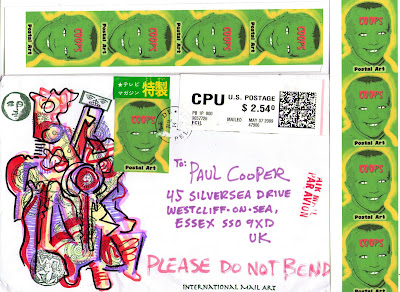 COOPS
COOPS
COOPS
COOPS
Postal Art
Postal Art
Postal Art
Postal Art
★テレビ
マガジン
特製
COOPS
Postal Art
CPU U.S. POSTAGE
$ 2.54
MAILED
TO:
PAUL COOPER
45 SILVERSEA DRIVE
WESTCLIFF-ON-SEA,
ESSEX SS0 9XD
UK
AIR MAIL
PAR AVION
PLEASE DO NOT BEND
INTERNATIONAL MAIL ART
COOPS
Postal Art
COOPS
Postal Art
COOPS
Postal Art
COOPS
Postal Art